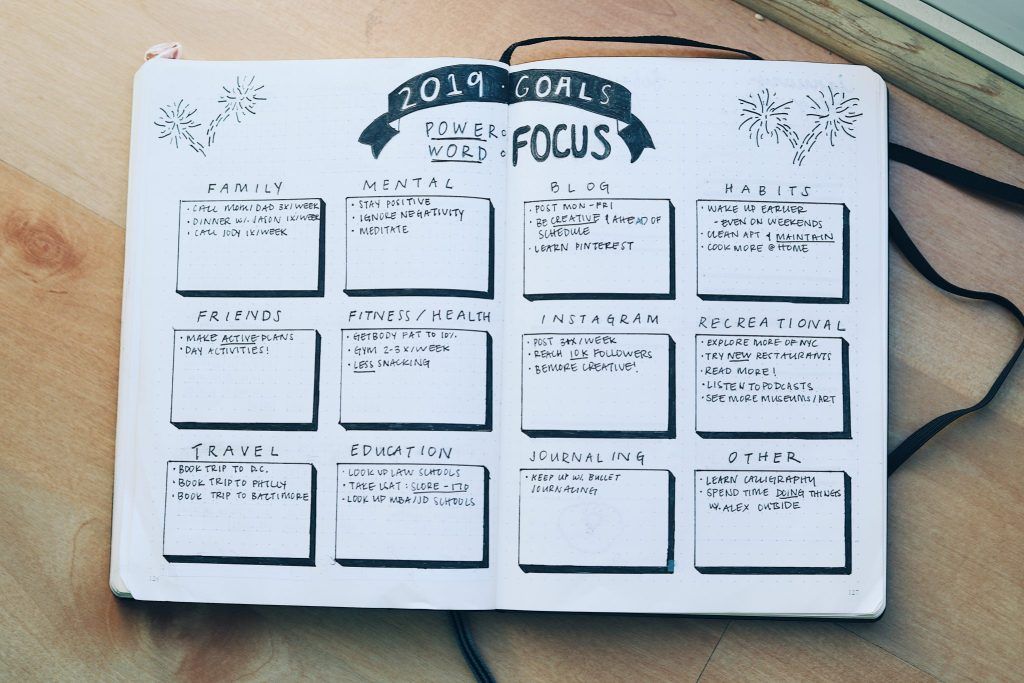 2019 · GOALS
POWER WORD : FOCUS
FAMILY
· CALL MOM/DAD 3X/WEEK
· DINNER W/. JASON 1X/WEEK
· CALL JODY 1X/WEEK
MENTAL
· STAY POSITIVE
· IGNORE NEGATIVITY
· MEDITATE
BLOG
· POST MON-FRI
· BE CREATIVE & AHEAD OF
SCHEDULE
· LEARN PINTEREST
HABITS
· WAKE UP EARLIER
- EVEN ON WEEKENDS
· CLEAN APT & MAINTAIN
· COOK MORE @ HOME
FRIENDS
· MAKE ACTIVE PLANS
· DAY ACTIVITIES!
FITNESS/HEALTH
· GET BODY FAT TO 10%
· GYM 2-3X/WEEK
· LESS SNACKING
INSTAGRAM
· POST 3-4X/WEEK
· REACH 10K FOLLOWERS
· BE MORE CREATIVE!
RECREATIONAL
· EXPLORE MORE OF NYC
· TRY NEW RESTAURANTS
· READ MORE!
· LISTEN TO PODCASTS
· SEE MORE MUSEUMS/ART
TRAVEL
· BOOK TRIP TO D.C.
· BOOK TRIP TO PHILLY
· BOOK TRIP TO BALTIMORE
EDUCATION
· LOOK UP LAW SCHOOLS
· TAKE LSAT : SCORE - 170
· LOOK UP MBA/JD SCHOOLS
JOURNALING
· KEEP UP W/. BULLET
JOURNALING
OTHER
· LEARN CALLIGRAPHY
· SPEND TIME DOING THINGS
W/. ALEX OUTSIDE
127